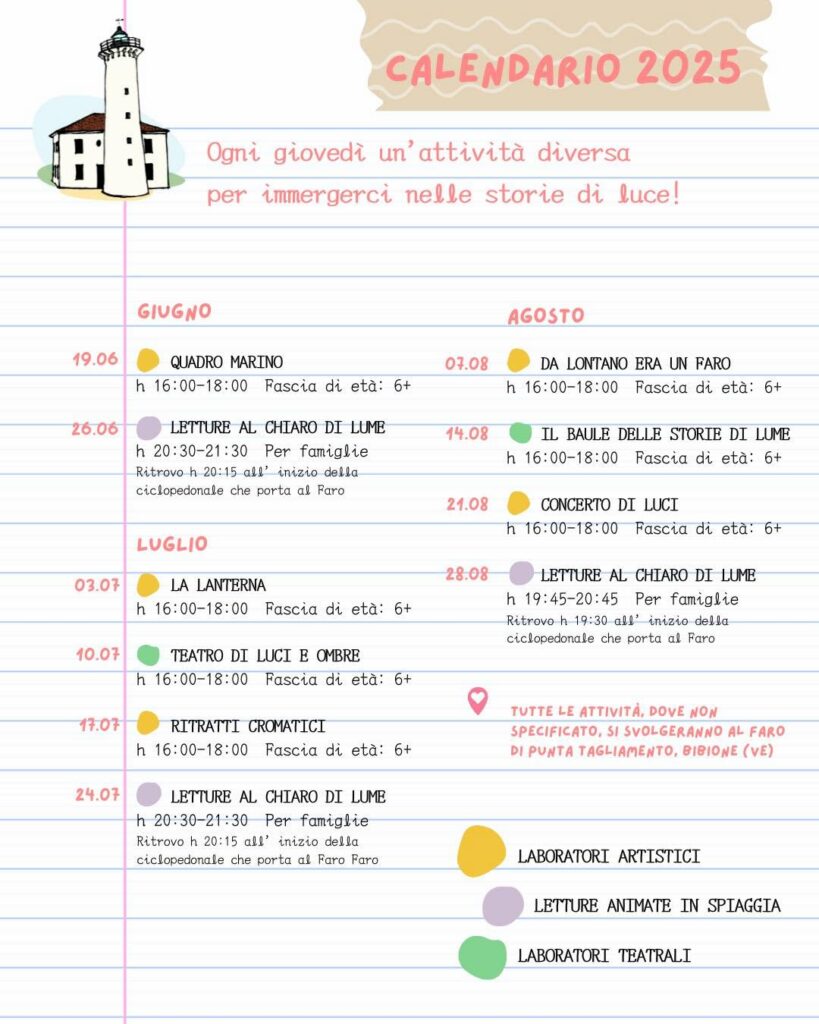 CALENDARIO 2025
Ogni giovedì un'attività diversa
per immergerci nelle storie di luce!
GIUGNO
19.06 QUADRO MARINO
h 16:00-18:00 Fascia di età: 6+
26.06 LETTURE AL CHIARO DI LUME
h 20:30-21:30 Per famiglie
Ritrovo h 20:15 all' inizio della
ciclopedonale che porta al Faro
LUGLIO
03.07 LA LANTERNA
h 16:00-18:00 Fascia di età: 6+
10.07 TEATRO DI LUCI E OMBRE
h 16:00-18:00 Fascia di età: 6+
17.07 RITRATTI CROMATICI
h 16:00-18:00 Fascia di età: 6+
24.07 LETTURE AL CHIARO DI LUME
h 20:30-21:30 Per famiglie
Ritrovo h 20:15 all' inizio della
ciclopedonale che porta al Faro Faro
AGOSTO
07.08 DA LONTANO ERA UN FARO
h 16:00-18:00 Fascia di età: 6+
14.08 IL BAULE DELLE STORIE DI LUME
h 16:00-18:00 Fascia di età: 6+
21.08 CONCERTO DI LUCI
h 16:00-18:00 Fascia di età: 6+
28.08 LETTURE AL CHIARO DI LUME
h 19:45-20:45 Per famiglie
Ritrovo h 19:30 all' inizio della
ciclopedonale che porta al Faro
TUTTE LE ATTIVITÀ, DOVE NON
SPECIFICATO, SI SVOLGERANNO AL FARO
DI PUNTA TAGLIAMENTO, BIBIONE (VE)
LABORATORI ARTISTICI
LETTURE ANIMATE IN SPIAGGIA
LABORATORI TEATRALI